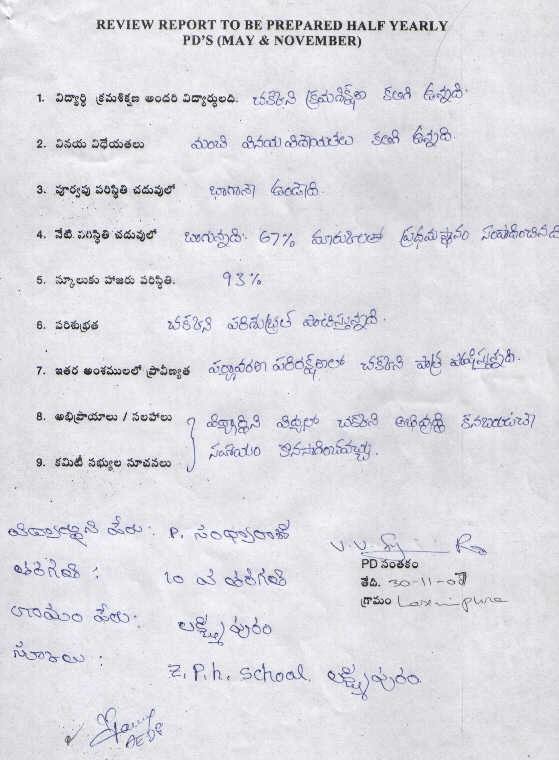 REVIEW REPORT TO BE PREPARED HALF YEARLY
PD'S (MAY & NOVEMBER)
1. విద్యార్థి క్రమశిక్షణ అందరి విద్యార్థులది. చక్కని క్రమశిక్షణ కలిగి ఉన్నది.
2. వినయ విధేయతలు మంచి వినయ విధేయతలు కలిగి ఉన్నది.
3. పూర్వపు పరిస్థితి చదువులో బాగానే ఉండేది.
4. నేటి పరిస్థితి చదువులో బాగున్నది. 67% మార్కులతో ప్రథమస్థానం సంపాదించినది
5. స్కూలుకు హాజరు పరిస్థితి. 93%
6. పరిశుభ్రత చక్కని పరిశుభ్రత పాటిస్తున్నది.
7. ఇతర అంశములలో ప్రావీణ్యత పర్యావరణ పరిరక్షణలో చక్కని పాత్ర పోషిస్తున్నది.
8. అభిప్రాయాలు / సలహాలు విద్యార్థిని విద్యలో చక్కని అభివృద్ధి కనబరుచు
9. కమిటీ సభ్యుల సూచనలు సహాయం కొనసాగించవచ్చు.
విద్యార్థిని పేరు : P. సంధ్యారాణి
తరగతి : 10 వ తరగతి
PD సంతకం
తేది. 30-11-07
గ్రామం Laxmipuram
గ్రామం పేరు : లక్ష్మీపురం
స్కూలు : Z.P.h. School, లక్ష్మీపురం